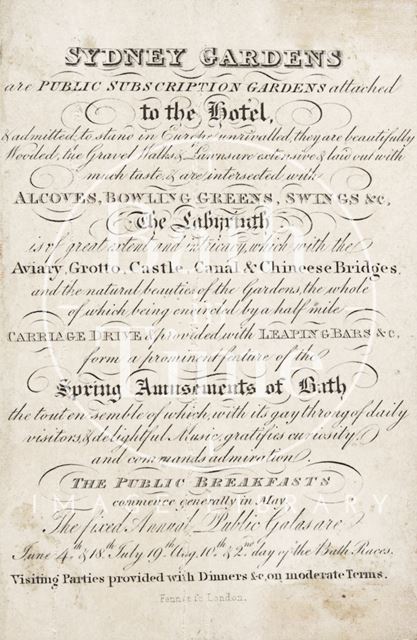 SYDNEY GARDENS
are PUBLIC SUBSCRIPTION GARDENS attached
to the Hotel,
& admitted to stand in Europe unrivalled, they are beautifully
Wooded, the Gravel Walks & Lawns are extensive & laid out with
much taste, & are intersected with
ALCOVES, BOWLING GREENS, SWINGS &c,
The Labyrinth
is of great extent and intricacy, which with the
Aviary, Grotto, Castle, Canal & Chineese Bridges,
and the natural beauties of the Gardens, the whole
of which being encircled by a half mile
CARRIAGE DRIVE & provided with LEAPING BARS &c,
form a prominent feature of the
Spring Amusements of Bath
the tout en semble of which, with its gay throng of daily
visitors, & delightful Music, gratifies curiosity,
and commands admiration.
THE PUBLIC BREAKFASTS
commence generally in May.
The fixed Annual Public Galas are
June 4th & 18th July 19th Aug. 10th & 2nd day of the Bath Races.
Visiting Parties provided with Dinners &c, on moderate Terms.
London.
Bath in Time
IMAGE LIBRARY